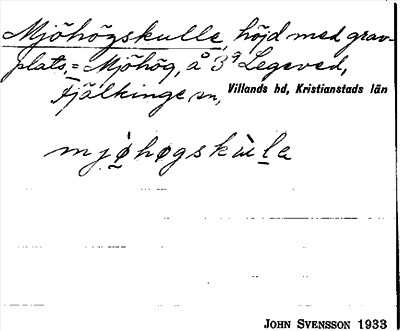 Mjöhögskulle, höjd med grav-
plats, = Mjöhög, å 3⁹ Legeved,
Fjälkinge sn, Villands hd, Kristianstads län
mjö̀høgskùl̲a
JOHN SVENSSON 1933